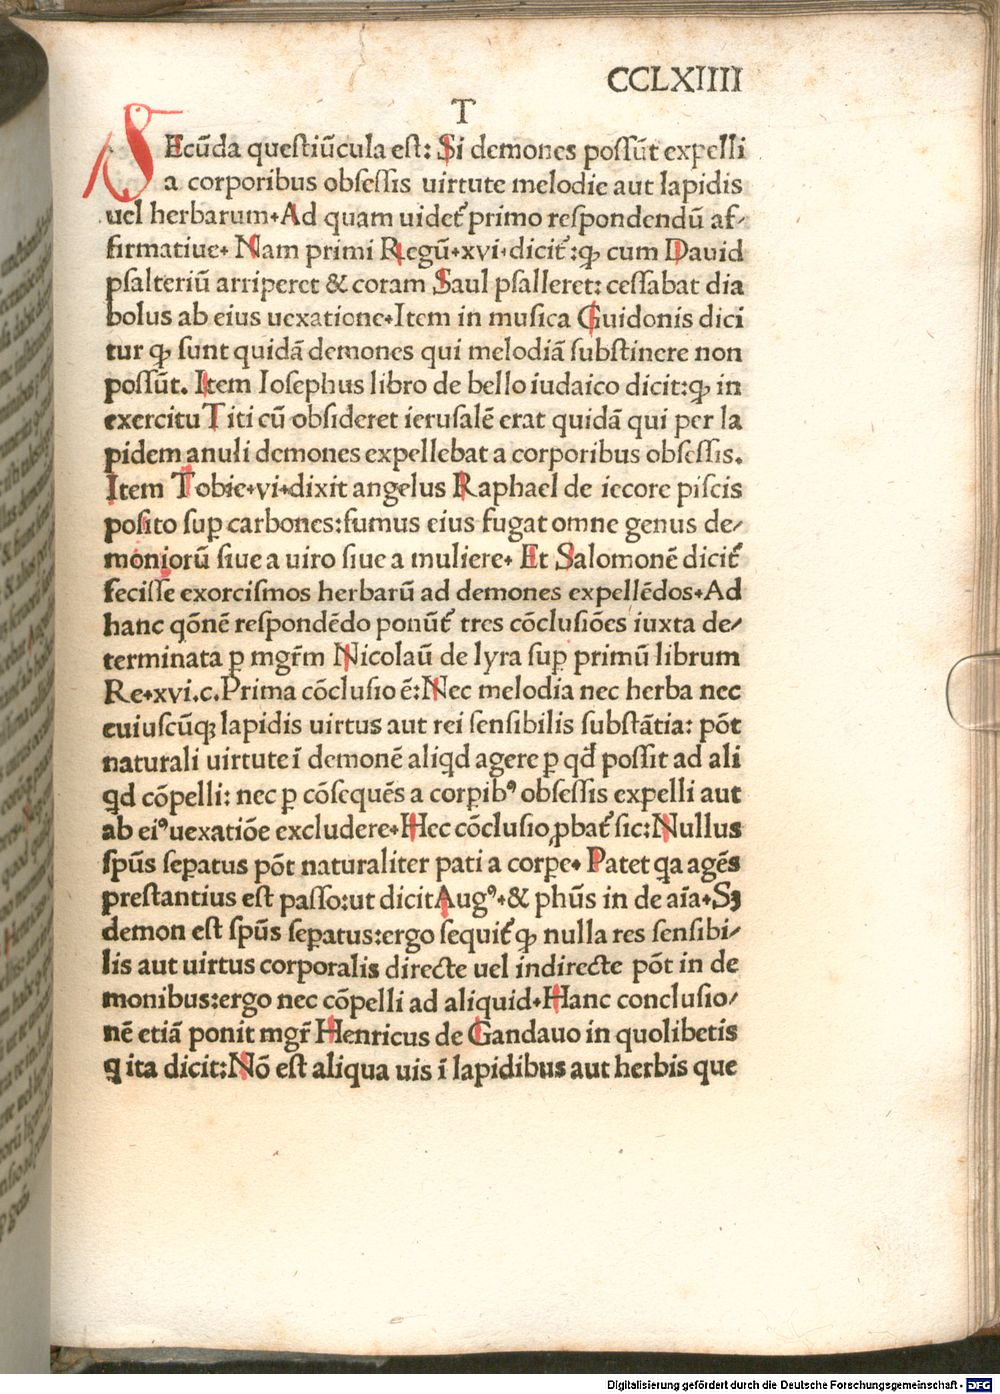 CCLXIIII
T
SEcūda questiūcula est: Si demones possūt expelli
a corporibus obsessis uirtute melodie aut lapidis
uel herbarum. Ad quam uidet̄ primo respondendū af⸗
firmatiue. Nam primi Regū.xvi.dicit̄:ꝙ cum Dauid
psalteriū arriperet & coram Saul psalleret: cessabat dia
bolus ab eius uexatione.Item in musica Guidonis dici
tur ꝙ sunt quidā demones qui melodiā substinere non
possūt. Item Iosephus libro de bello iudaico dicit:ꝙ in
exercitu Titi cū obsideret ierusalē erat quidā qui per la
pidem anuli demones expellebat a corporibus obsessis.
Item Tobie.vi.dixit angelus Raphael de iecore piscis
posito suꝑ carbones:fumus eius fugat omne genus de⸗
moniorū siue a uiro siue a muliere. Et Salomonē dicit̄
fecisse exorcismos herbarū ad demones expellēdos.Ad
hanc qōnē respondēdo ponūt̄ tres cōclusiōes iuxta de⸗
terminata ꝑ mgr̄m Nicolaū de lyra suꝑ primū librum
Re.xvi.c.Prima cōclusio ē:Nec melodia nec herba nec
cuiuscūqꝫ lapidis uirtus aut rei sensibilis substātia: pōt
naturali uirtute ī demonē aliqd agere ꝑ qd̄ possit ad ali
qd cōpelli: nec ꝑ cōsequēs a corꝑibꝰ obsessis expelli aut
ab eiꝰ uexatiōe excludere.Hec cōclusio ꝓbat̄ sic:Nullus
spūs seꝑatus pōt naturaliter pati a corꝑe. Patet qa agēs
prestantius est passo:ut dicit Augꝰ.& phūs in de aīa.Sꝫ
demon est spūs seꝑatus:ergo sequit̄ ꝙ nulla res sensibi⸗
lis aut uirtus corporalis directe uel indirecte pōt in de
monibus:ergo nec cōpelli ad aliquid.Hanc conclusio⸗
nē etiā ponit mgr̄ Henricus de Gandauo in quolibetis
q ita dicit:Nō est aliqua uis ī lapidibus aut herbis que
Digitalisierung gefördert durch die Deutsche Forschungsgemeinschaft - DFG